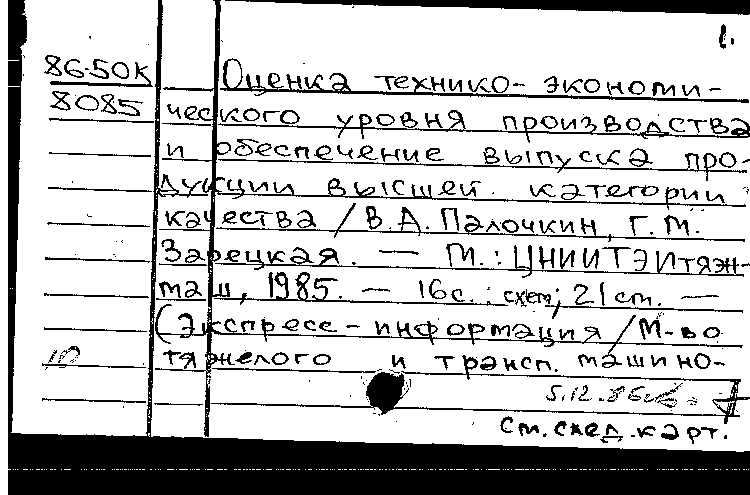 1.
86-50К Оценка технико-экономи-
8085 ческого уровня производства
и обеспечение выпуска про-
дукции высшей категории
качества / В.А. Палочкин, Г.М.
Зарецкая. — М.: ЦНИИТЭИтяж-
маш, 1985. — 16с.: схем; 21 cm. —
(Экспресс-информация / М-во
10 тяжелого и трансп. машино-
5.12.86
См. след. карт.